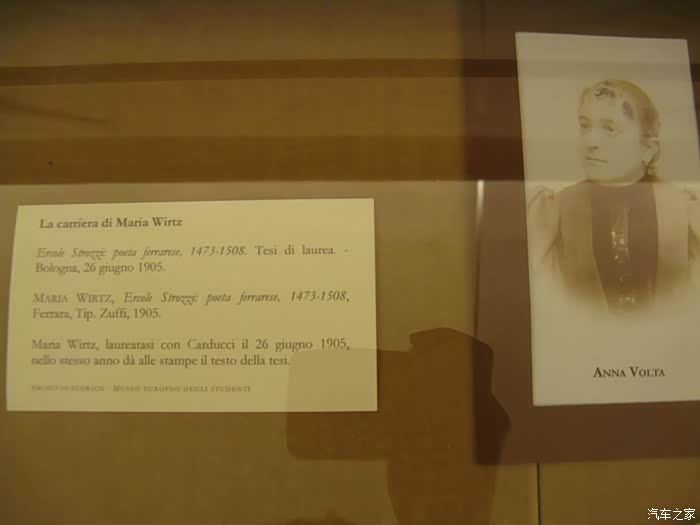 La carriera di Maria Wirtz
Ercole Strozzi: poeta ferrarese, 1473-1508. Tesi di laurea. -
Bologna, 26 giugno 1905.
MARIA WIRTZ, Ercole Strozzi: poeta ferrarese, 1473-1508,
Ferrara, Tip. Zuffi, 1905.
Maria Wirtz, laureatasi con Carducci il 26 giugno 1905,
nello stesso anno dà alle stampe il testo della tesi.
ARCHIVIO STORICO - MUSEO EUROPEO DEGLI STUDENTI
ANNA VOLTA
汽车之家